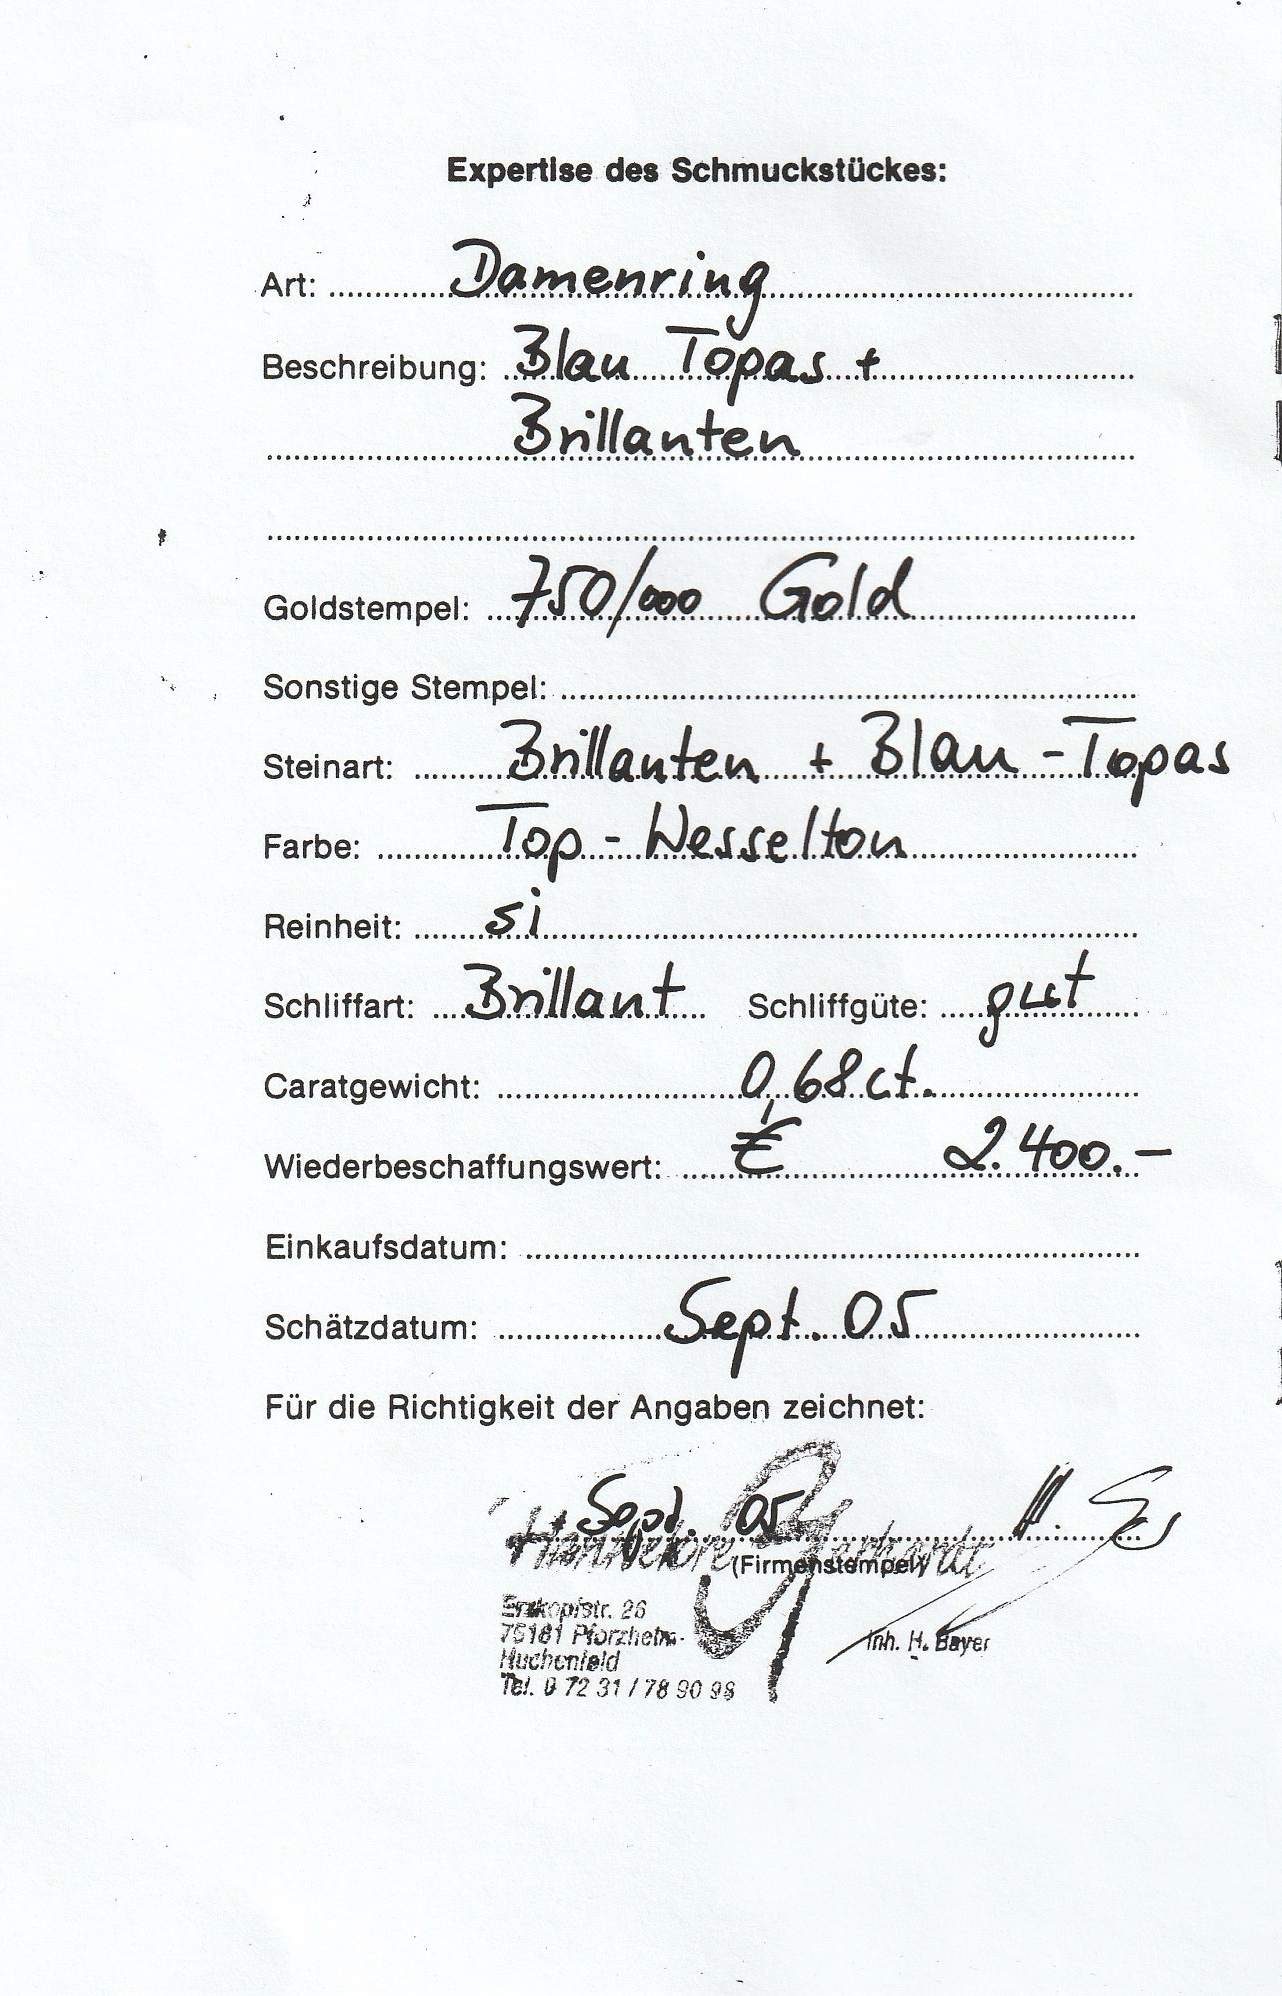 Expertise des Schmuckstückes:
Art: Damenring
Beschreibung: Blau Topas +
Brillanten
Goldstempel: 750/000 Gold
Sonstige Stempel:
Steinart: Brillanten + Blau-Topas
Farbe: Top-Wesselton
Reinheit: si
Schliffart: Brillant Schliffgüte: gut
Caratgewicht: 0,68 ct.
Wiederbeschaffungswert: € 2.400.-
Einkaufsdatum:
Schätzdatum: Sept. 05
Für die Richtigkeit der Angaben zeichnet:
Sept. 05
Hannelore Gerhardt
(Firmenstempel)
75181 Pforzheim-
Huchenfeld
Inh. H. Bayer
Tel. 0 72 31 / 78 90 98